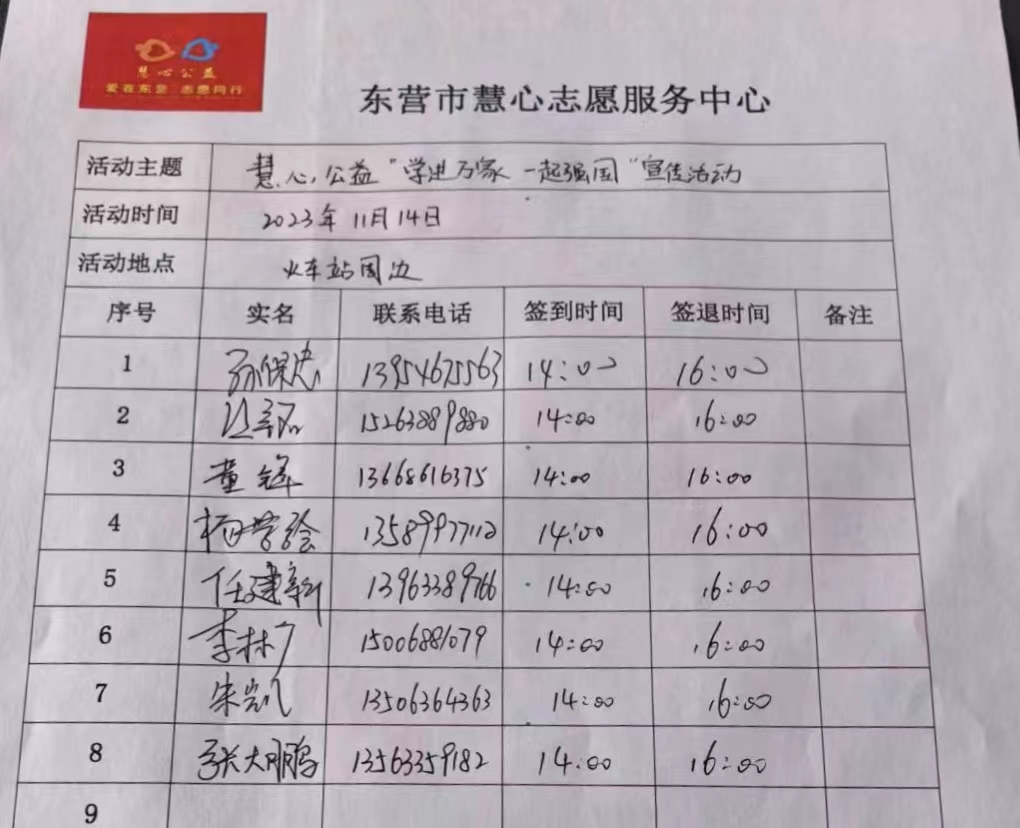 慧心公益
爱在东营 志愿同行
东营市慧心志愿服务中心
活动主题 慧心公益“学进万家 一起强国”宣传活动
活动时间 2023年11月14日
活动地点 火车站周边
序号 实名 联系电话 签到时间 签退时间 备注
1 孙保忠 13954675563 14:00 16:00
2 15263889880 14:00 16:00
3 董锋 13668616375 14:00 16:00
4 13589977112 14:00 16:00
5 任建新 13963389766 14:00 16:00
6 李林广 15006881079 14:00 16:00
7 朱凯 13506364363 14:00 16:00
8 张大鹏 13563359182 14:00 16:00
9